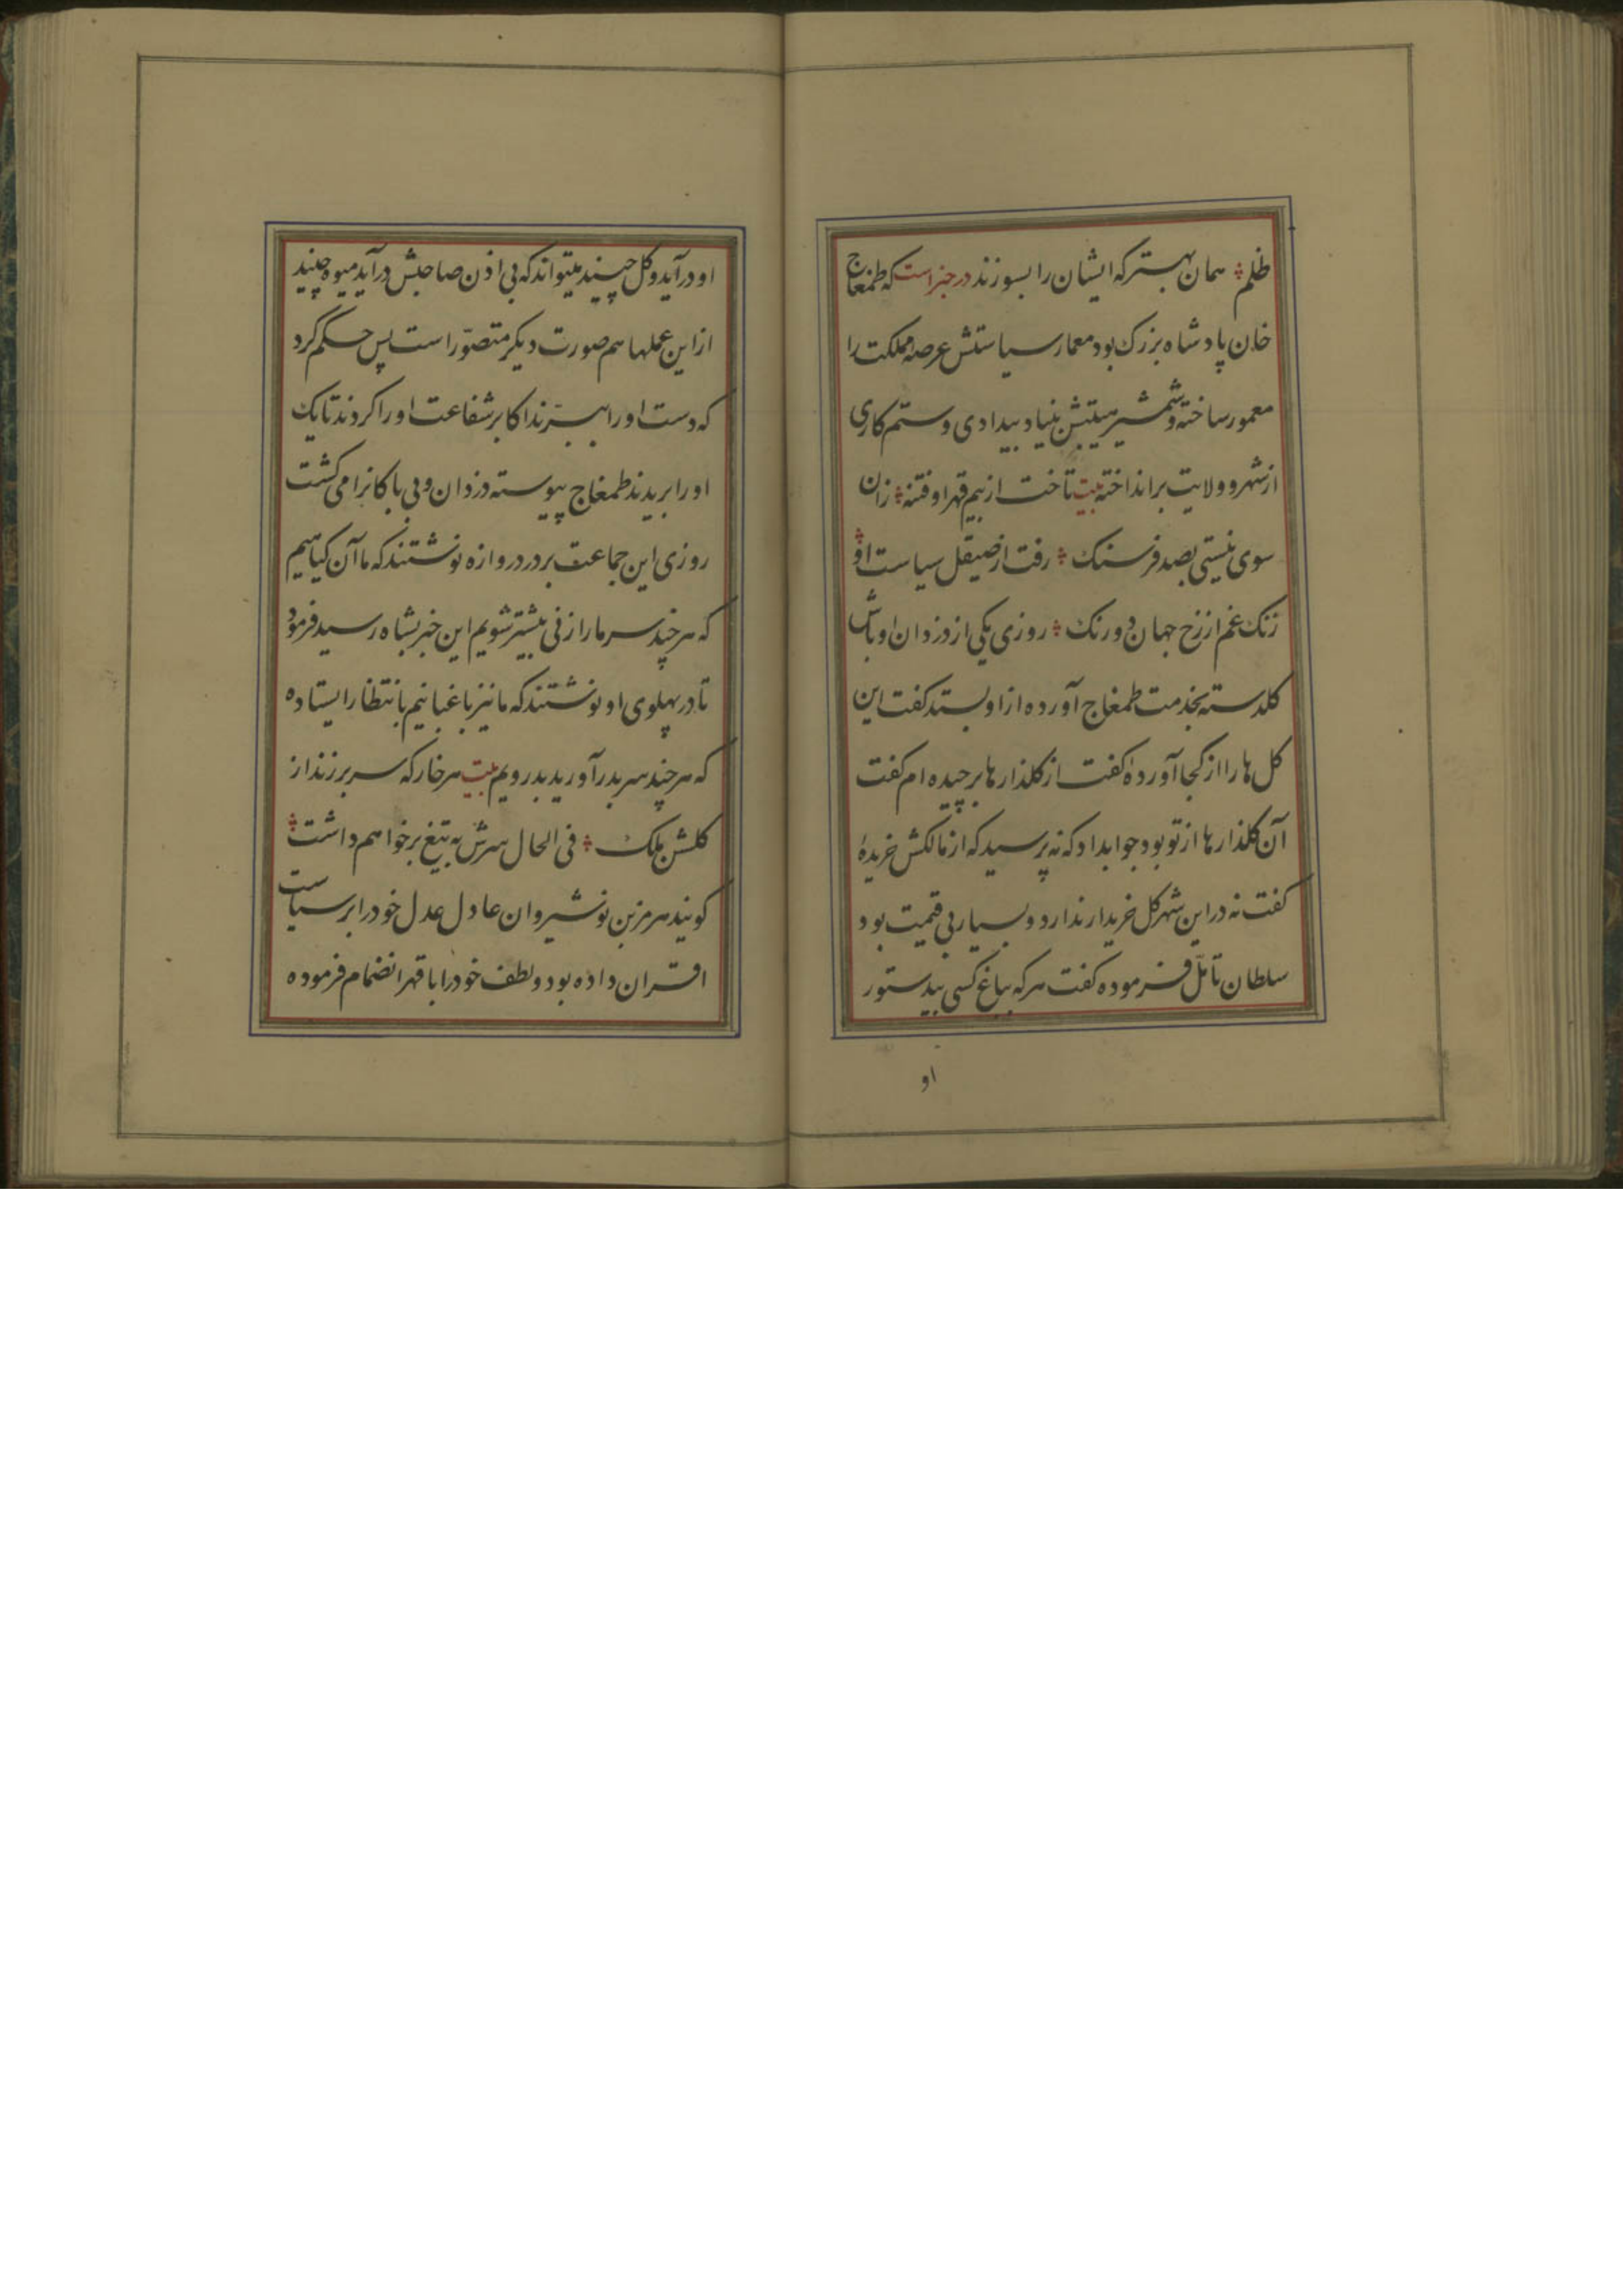 ظلم ؞ همان بهتر که ایشان را بسوزند در خبر است که طمغاج
خان پادشاه بزرک بود معمار سیاستش عرصه مملکت را
معمور ساخته و شمشیر هیبتش بنیاد بیدادی و ستم کاری
از شهر و ولایت بر انداخته بیت تاخت از بیم قهر او فتنه ؞ زان
سوی نیستی بصد فرسنک ؞ رفت از صیقل سیاست او ؞
زنک غم از رخ جهان دو رنک ؞ روزی یکی از دزدان اوباش
کلدسته بخدمت طمغاج آورده از او بستد کفت این
کل ها را از کجا آوردهٔ کفت از کلذارها بر چیده ام کفت
آن کلذارها از تو بود جواب داد که نه پرسید که از مالکش خریدهٔ
کفت نه در این شهر کل خریدار ندارد و بسیار بی قیمت بود
سلطان تأمّل فرموده کفت هر که بباغ کسی بیدستور
او
او در آید و کل چیند میتواند که بی اذن صاحبش در آید میوه چیند
از این عملها هم صورت دیکر متصوّر است پس حکم کرد
که دست او را ببرّند اکابر شفاعت او را کردند تا یک
او را بریدند طمغاج پیوسته دزدان و بی باکانرا می کشت
روزی این جماعت بر در دروازه نوشتند که ما آن کیاهیم
که هر چند سر ما را زنی بیشتر شویم این خبر بشاه رسید فرمود
تا در پهلوی او نوشتند که ما نیز باغبانیم بانتظار ایستاده
که هر چند سر بدر آورید بدرویم بیت هر خار که سر برزند از
کلشن ملک ؞ فی الحال سرش به تیغ بر خواهم داشت ؞
کویند هرمز بن نوشیروان عادل عدل خود را بر سیاست
اقتران داده بود و لطف خود را با قهر انضمام فرموده